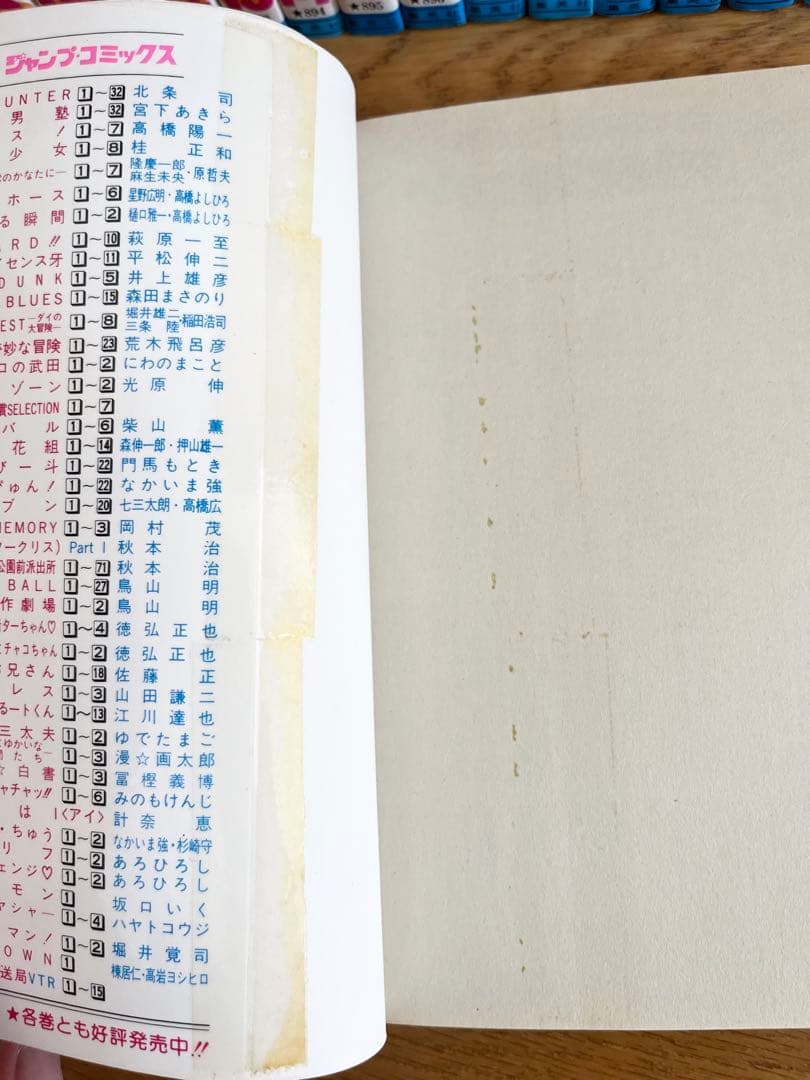 ★894
★895
★896
ジャンプ・コミックス
UNTER 1〜32 北条司
男塾 1〜32 宮下あきら
ス! 1〜7 高橋陽一
少女 1〜8 桂正和
のかなたに― 1〜7 隆慶一郎・麻生未央・原哲夫
ホース 1〜6 星野広明・高橋よしひろ
る瞬間 1〜2 樋口雅一・高橋よしひろ
ARD!! 1〜10 萩原一至
イセンス牙 1〜11 平松伸二
DUNK 1〜5 井上雄彦
BLUES 1〜15 森田まさのり
EST―ダイの大冒険― 1〜8 堀井雄二・三条陸・稲田浩司
妙な冒険 1〜23 荒木飛呂彦
コの武田 1〜2 にわのまこと
ゾーン 1〜2 光原伸
賞SELECTION 1〜7
バル 1〜6 柴山薫
花組 1〜14 森伸一郎・押山雄一
び一斗 1〜22 門馬もとき
ぴゅん! 1〜22 なかいま強
ブン 1〜20 七三太朗・高橋広
MEMORY 1〜3 岡村茂
ークリス) Part I 秋本治
公園前派出所 1〜71 秋本治
BALL 1〜27 鳥山明
作劇場 1〜2 鳥山明
ターちゃん♡ 1〜4 徳弘正也
チャコちゃん 1〜2 徳弘正也
兄さん 1〜18 佐藤正
レス 1〜3 山田謙二
るートくん 1〜13 江川達也
三太夫 1〜2 ゆでたまご
ゆかいな たち― 1〜3 漫☆画太郎
☆白書 1〜3 冨樫義博
ャチャッ!! 1〜6 みのもけんじ
は I〈アイ〉 計奈恵
・ちゅう 1〜2 なかいま強・杉崎守
リフ 1〜2 あろひろし
ェンジ♡ 1〜2 あろひろし
モン 1 坂口いく
ァシャー 1〜4 ハヤトコウジ
マン! 1〜2 堀井覚司
OWN 1 棟居仁・高岩ヨシヒロ
送局VTR 1〜15
★各巻とも好評発売中!!